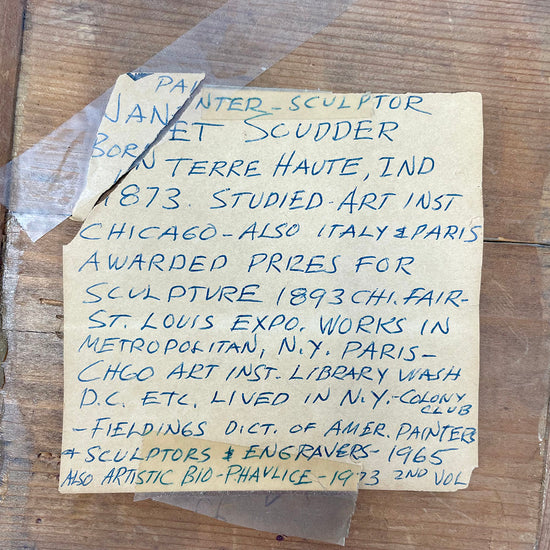 PAINTER - SCULPTOR
JANET SCUDDER
BORN IN TERRE HAUTE, IND
1873. STUDIED - ART INST
CHICAGO - ALSO ITALY & PARIS
AWARDED PRIZES FOR
SCULPTURE 1893 CHI. FAIR -
ST. LOUIS EXPO. WORKS IN
METROPOLITAN, N.Y. PARIS -
CHGO ART INST. LIBRARY WASH
D.C. ETC. LIVED IN N.Y. - COLONY
CLUB
- FIELDINGS DICT. OF AMER. PAINTERS
& SCULPTORS & ENGRAVERS - 1965
ALSO ARTISTIC BIO - HAVLICE - 1973 2ND VOL